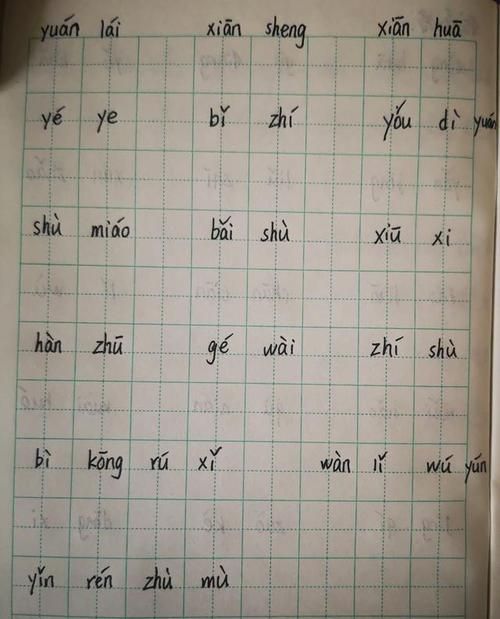 yuán lái xiān sheng xiān huā
yé ye bǐ zhí yóu dì yuán
shù miáo bǎi shù xiū xi
hàn zhū gé wài zhí shù
bì kōng rú xǐ wàn lǐ wú yún
yǐn rén zhù mù